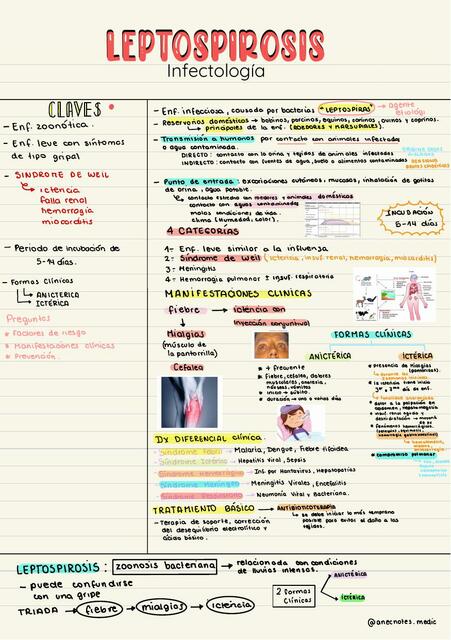 LEPTOSPIROSIS
Infectología
CLAVES
- Enf. zoonótica.
- Enf. leve con síntomas
de tipo gripal
- SINDROME DE WEIL
Ictericia
falla renal
hemorragia
miocarditis
- Periodo de incubación de
5-14 días.
- Formas clínicas
ANICTERICA
ICTÉRICA
Preguntas
* Factores de riesgo
* Manifestaciones clínicas
* Prevención.
- Enf. infecciosa, causada por bacterias "LEPTOSPIRAS" → agente
- Reservorios domésticos → bobinos, porcinos, equinos, caninos, ovinos y caprinos.
principales de la enf. (ROEDORES Y MARSUPIALES).
- Transmisión a humanos por contacto con animales infectados
o agua contaminada.
DIRECTO: contacto con la orina y tejidos de animales infectados
INDIRECTO: contacto con fuentes de agua, suelo o alimentos contaminados
- Punto de entrada: excoriaciones cutáneas, mucosas, inhalación de gotitas
de orina, agua potable.
contacto estrecho con roedores y animales domésticos
contacto con aguas contaminadas
malas condiciones de vida.
clima (Humedad, calor).
INCUBACIÓN
5-14 días
4 CATEGORÍAS
1= Enf. leve similar a la influenza
2= Síndrome de Weil (Ictericia, insuf. renal, hemorragia, miocarditis)
3= Meningitis
4= Hemorragia pulmonar ± insuf. respiratoria
MANIFESTACIONES CLINICAS
fiebre → Ictericia con
inyección conjuntival
Mialgias
(músculo de
la pantorrilla)
Cefalea
FORMAS CLÍNICAS
ANICTÉRICA
* + frecuente
* Fiebre, cefalea, dolores
musculares, anorexia,
náuseas, vómitos
* Inicio → súbito.
* duración → uno o varios días
ICTÉRICA
* Presencia de mialgias
* la ictericia tiene inicio
* dolor a la palpación en
abdomen, hepatomegalia
* insuf. renal aguda y
deshidratación
* compromiso pulmonar
Dx DIFERENCIAL clínica.
- Síndrome Febril → Malaria, Dengue, Fiebre tifoidea
- Síndrome Ictérico → Hepatitis Viral, Sepsis
- Síndrome Hemorrágico → Inf. por Hantavirus, Hepatopatías
- Síndrome Meníngeo → Meningitis Virales, Encefalitis
- Síndrome Respiratorio → Neumonía Vital y Bacteriana.
TRATAMIENTO BÁSICO → ANTIBIOTICOTERAPIA
- Terapia de soporte, corrección
del desequilibrio electrolítico y
ácido básico.
se debe iniciar lo más temprano
posible para evitar el daño a los
tejidos.
LEPTOSPIROSIS : zoonosis bacteriana → relacionada con condiciones
de lluvias intensas.
- puede confundirse
con una gripe
TRIADA → fiebre → mialgias → Ictericia
2 Formas
Clínicas
ANICTÉRICA
ICTÉRICA
@anecnotes.medic